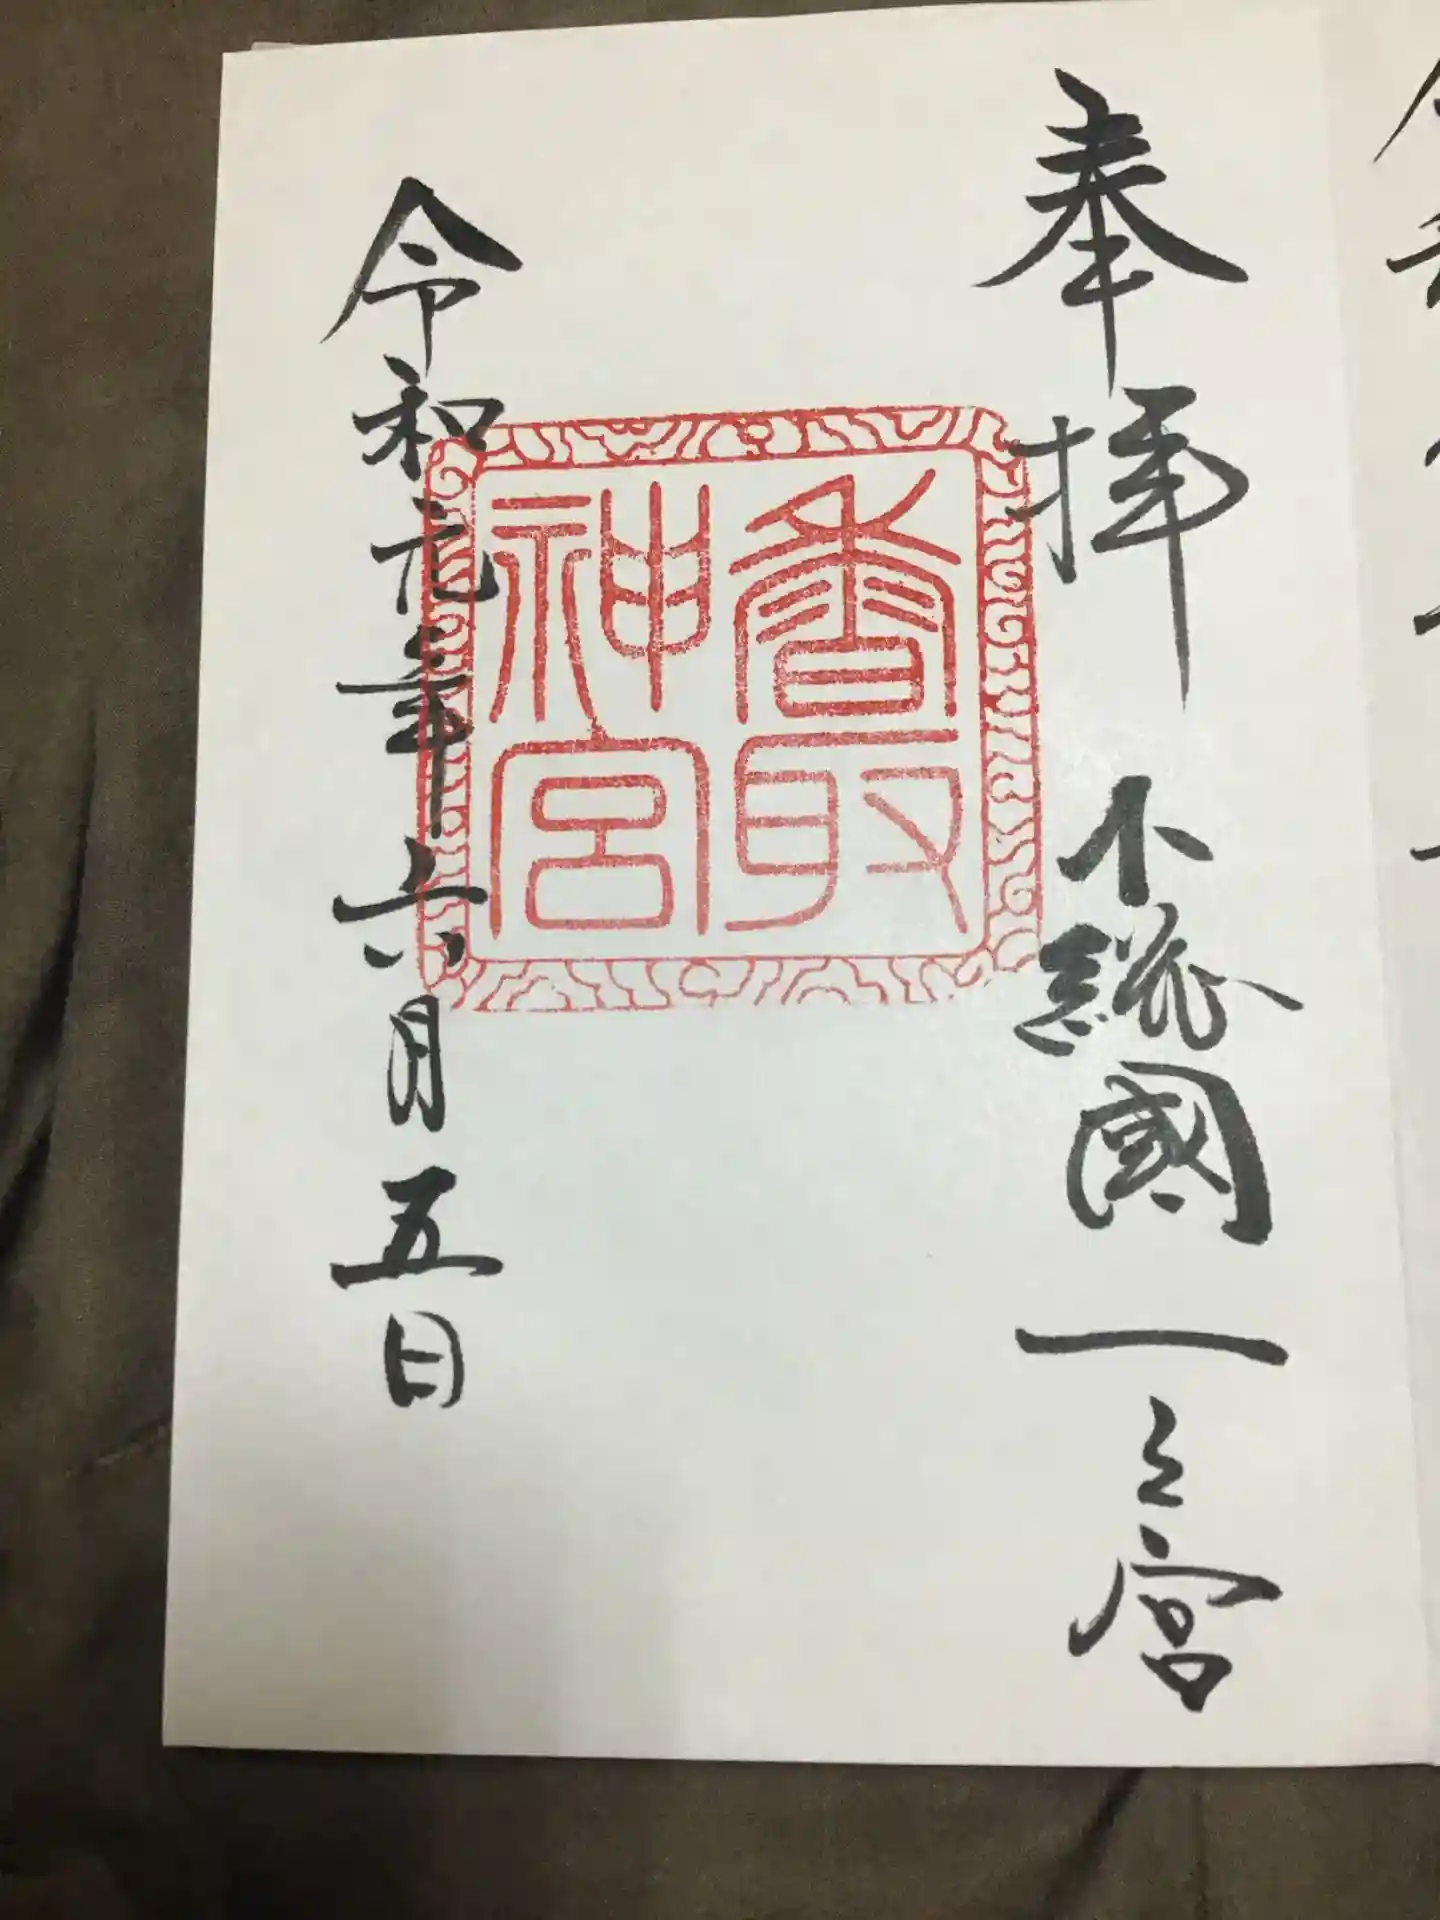 奉拝 下総國一之宮
香取
神宮
令和元年六月五日